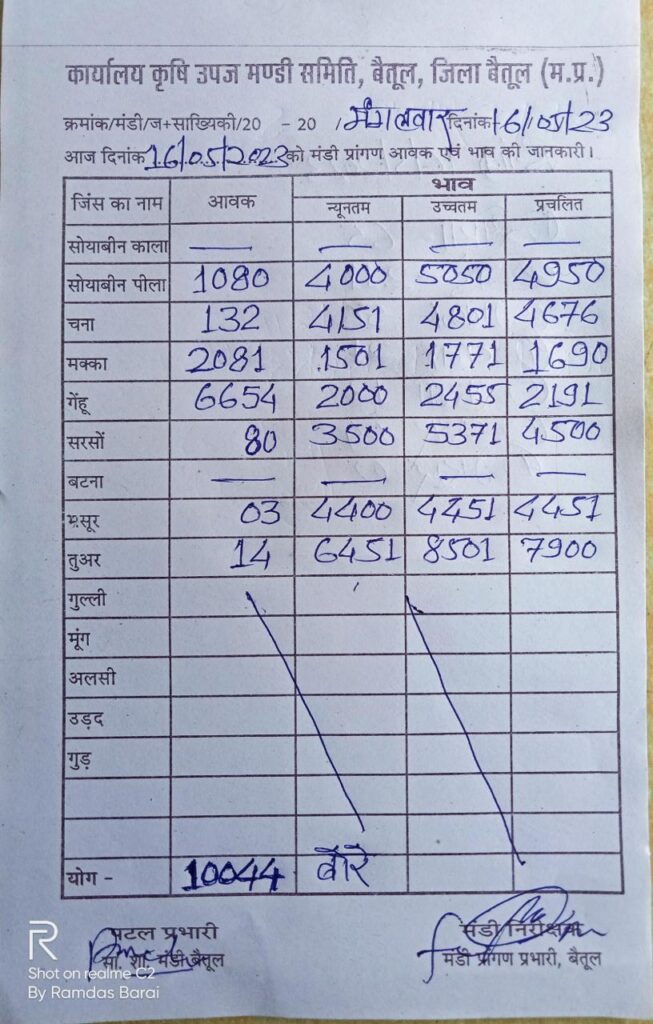 कार्यालय कृषि उपज मण्डी समिति, बैतूल, जिला बैतूल (म.प्र.)
क्रमांक/मंडी/ज+साख्यिकी/20 - 20 / मंगलवार दिनांक 16/05/23
आज दिनांक 16/05/2023 को मंडी प्रांगण आवक एवं भाव की जानकारी।
जिंस का नाम आवक भाव
न्यूनतम उच्चतम प्रचलित
सोयाबीन काला — — — —
सोयाबीन पीला 1080 4000 5050 4950
चना 132 4151 4801 4676
मक्का 2081 1501 1771 1690
गेंहू 6654 2000 2455 2191
सरसों 80 3500 5371 4500
बटना — — — —
मसूर 03 4400 4451 4451
तुअर 14 6451 8501 7900
गुल्ली
मूंग
अलसी
उड़द
गुड़
योग - 10044 बोरे
पटल प्रभारी मंडी निरीक्षक
सां. शा. मंडी बैतूल मंडी प्रांगण प्रभारी, बैतूल
R
Shot on realme C2
By Ramdas Barai